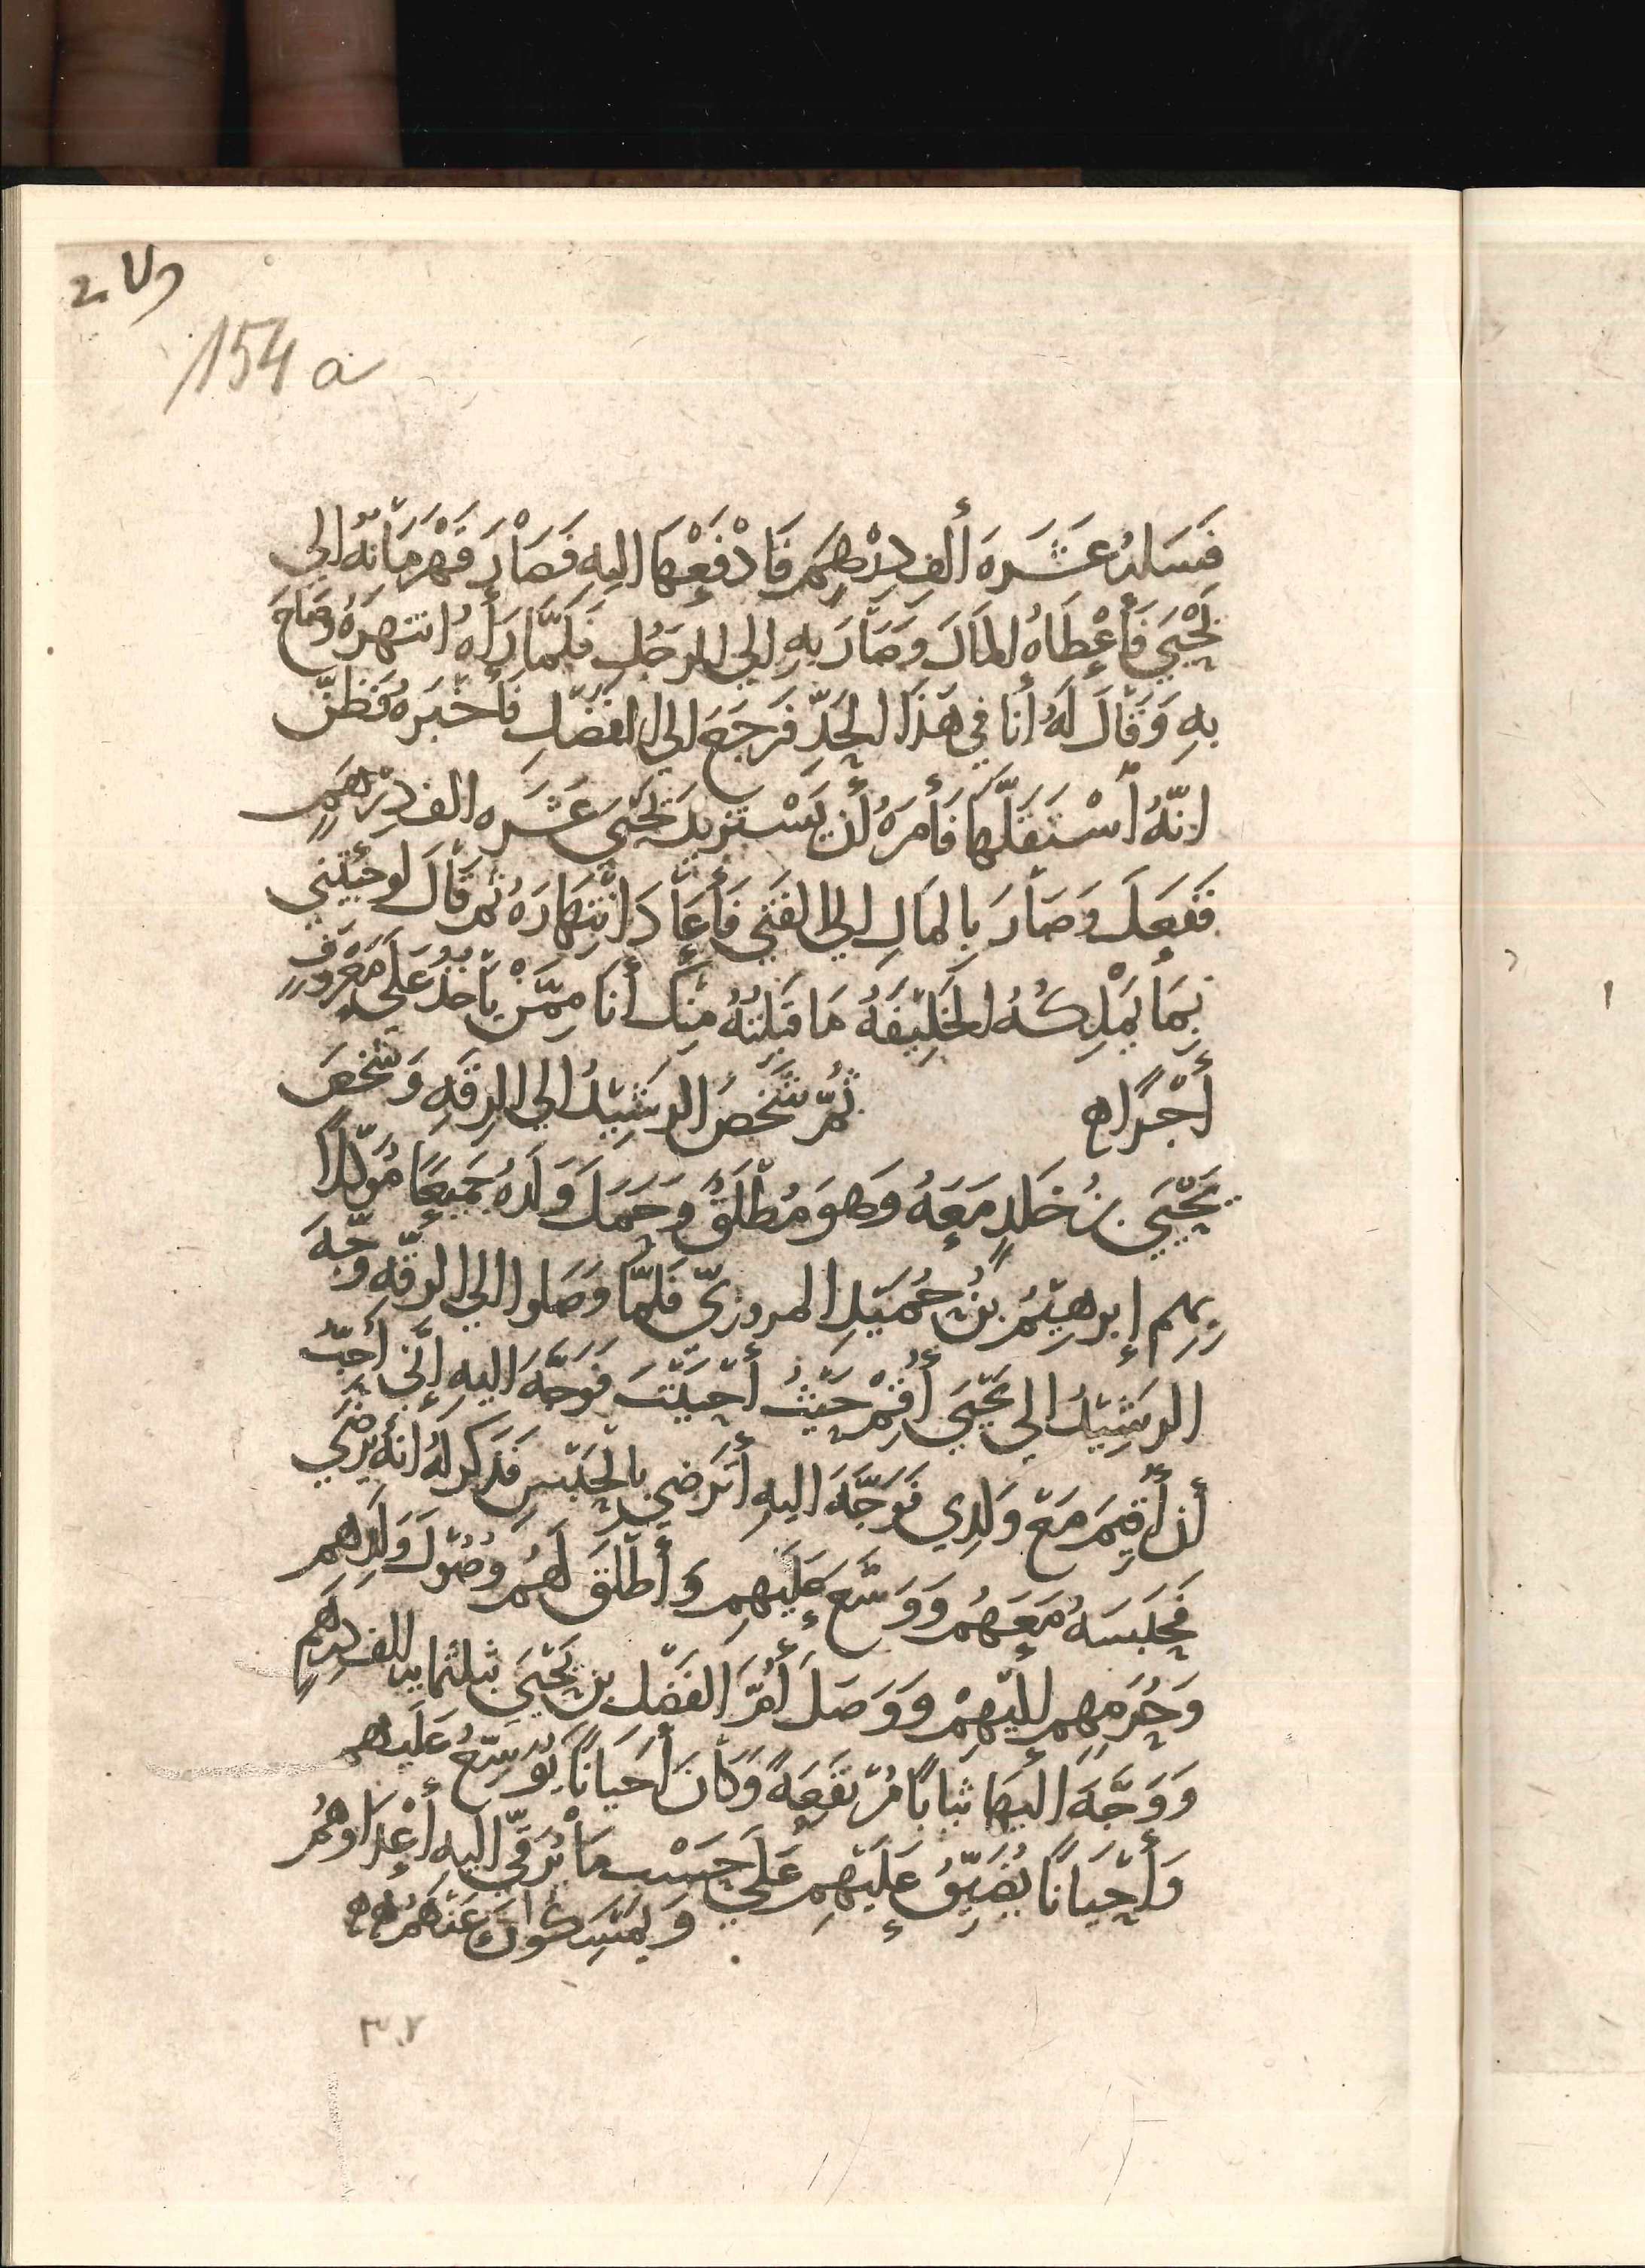 154 a
فَسَلهُ عَشَرَةَ أَلف دِرْهَمٍ فَادْفَعْهَا اليهِ فَصَارَ قَهْرَمَانهُ الي
يَحْيَي فَأَعْطَاهُ المَالَ وَصَارَ بِهِ الي الرَجُلِ فَلَمَّا رَأَهُ انتَهرَهُ وَصَاحَ
بِهِ وَقَالَ لَهُ أنا في هَذَا الحَدِّ فَرَجَعَ الي الفَضْلِ فَأَخْبَرَهُ فَظَنَّ
انّهُ اسْتَقَلَّهَا فَأَمَرَهُ أَن يَسْتَزِيدَ يَحْيَي عَشَرَه الف دِرْهَمٍ
فَفَعَلَ وَصَارَ بِالمَالِ الي الفَتَي فَأَعَادَ انْتِهَارَهُ ثُمَّ قَالَ لَو جِئْتَنِي
بِمَا يَمْلِكُهُ الخَلِيفَةُ مَا قَبِلتُهُ مِنكَ أَنَا مِمَّنْ يَأخُذُ عَلَي مَعْرُوفٍ
أَجْرًا ه ثُمَّ شَخَصَ الرَشِيدُ الي الرقَهِ وَشَخَصَ
يَحْيَي بنُ خَلدٍ مَعَهُ وَهوَ مُطْلَقٌ وَحَمَلَ وَلَدَهُ جَمِيعًا مُوَكلاً
بِهِم إِبرهِيمُ بْنُ حُمَيدٍ المروزيّ فَلَمَّا وَصَلوا الي الرقّهِ وَجَّهَ
الرَشِيدُ الي يَحْيَي أَقِمْ حَيْثُ أَحبَبْتَ فَوَجَّهَ اليهِ إِنَّي أُحِبُّ
أَن أُقِيمَ مَعَ وَلَدِي فَوَجَّهَ اليهِ أَتَرضَي بِالحَبْسِ فَذَكرَ لهُ انهُ يَرْضَي
فَحَبَسَهُ مَعَهُم وَوَسَّعَ عَلَيهِم وَأَطْلَقَ لَهُم وُصُولَ وَلَدِهم
وَحُرَمِهِم اليهِمْ وَوَصَلَ أُمَّ الفَضْل بن يَحْيَي بثلثمايه الف دِرهَمٍ
وَوَجَّهَ اليهَا ثيابًا مُرْتفَعِهً وَكَانَ أَحيَانًا يُوَسِّعُ عَلَيهم
وَأَحْيَانًا يُضَيِّقُ عَلَيهِم عَلَي حَسْب مَا تُرَقِّي اليهِ أَعْدَاوهُم
وَيُمْسِكُونَ عَنْهُم ه
٣٠٧